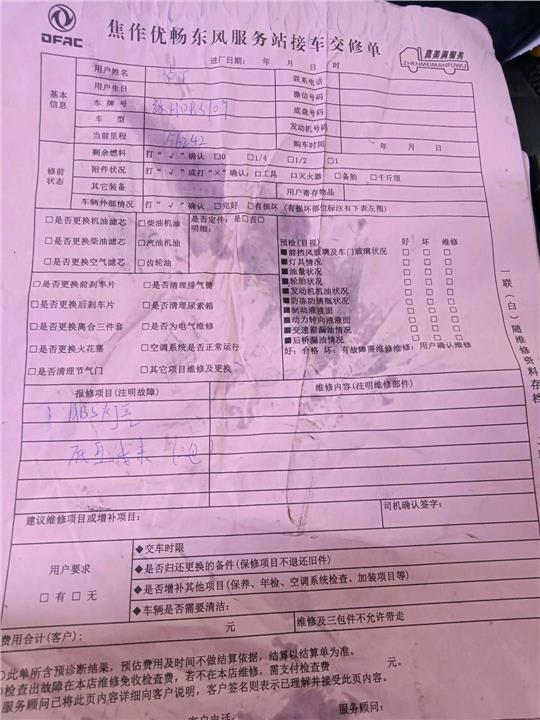 DFAC
焦作优畅东风服务站接车交修单
真美满服务
ZHENMEIMANFUWU
进厂日期： 年 月 日 时
基本信息
用户姓名
联系电话
用户生日
微信号码
车牌号
底盘号码
车型
发动机号码
当前里程 56242
购车时间 年 月 日
修前状态
剩余燃料 打“√”确认 □0 □1/4 □1/2 □1
附件状况 打“√”或打“×”确认：□工具 □灭火器 □备胎 □千斤顶
其它装备
用户寄存物品
车辆外部情况 打“√”确认 □完好 □有损坏（有损坏部位标注有下表左图）
□是否更换机油滤芯 □柴油机油 是否定件：是□否□
明细：
□是否更换柴油滤芯 □汽油机油
□是否更换空气滤芯 □齿轮油
□是否更换前刹车片 □是否清理排气筒
□是否更换后刹车片 □是否清理尿素箱
□是否更换离合三件套 □是否为电气维修
□是否更换火花塞 □空调系统是否正常运行
□是否清理节气门 □其它项目维修及更换
预检(目视) 好 坏 维修
■前挡风玻璃及车门玻璃状况 □ □ □
■灯具情况 □ □ □
■油量状况 □ □ □
■轮胎状况 □ □ □
■发动机机油状况 □ □ □
■防冻防锈瓶状况 □ □ □
■制动液液面 □ □ □
■动力转向液液面 □ □ □
■变速箱漏油情况 □ □ □
■后桥漏油情况 □ □ □
好：合格 坏：有故障需维修维修：用户确认维修
一联（白）随维修资料存档
报修项目(注明故障)
维修内容(注明维修部件)
1 ABS灯亮
建议维修项目或增补项目：
司机确认签字：
用户要求
□有 □无
◆交车时限
◆是否归还更换的备件(保修项目不退还旧件)
◆是否增补其他项目(保养、年检、空调系统检查、加装项目等)
◆车辆是否需要清洁：
费用合计(客户)： 元
维修及三包件不允许带走
①此单所含预诊断结果，预估费用及时间不做结算依据，结算以结算单为准。
②检查出故障在本店维修免收检查费，若不在本店维修，需支付检查费 元。
服务顾问已将此页内容详细向客户说明，客户签名则表示已理解并接受此页内容。
客户电话：
服务顾问：